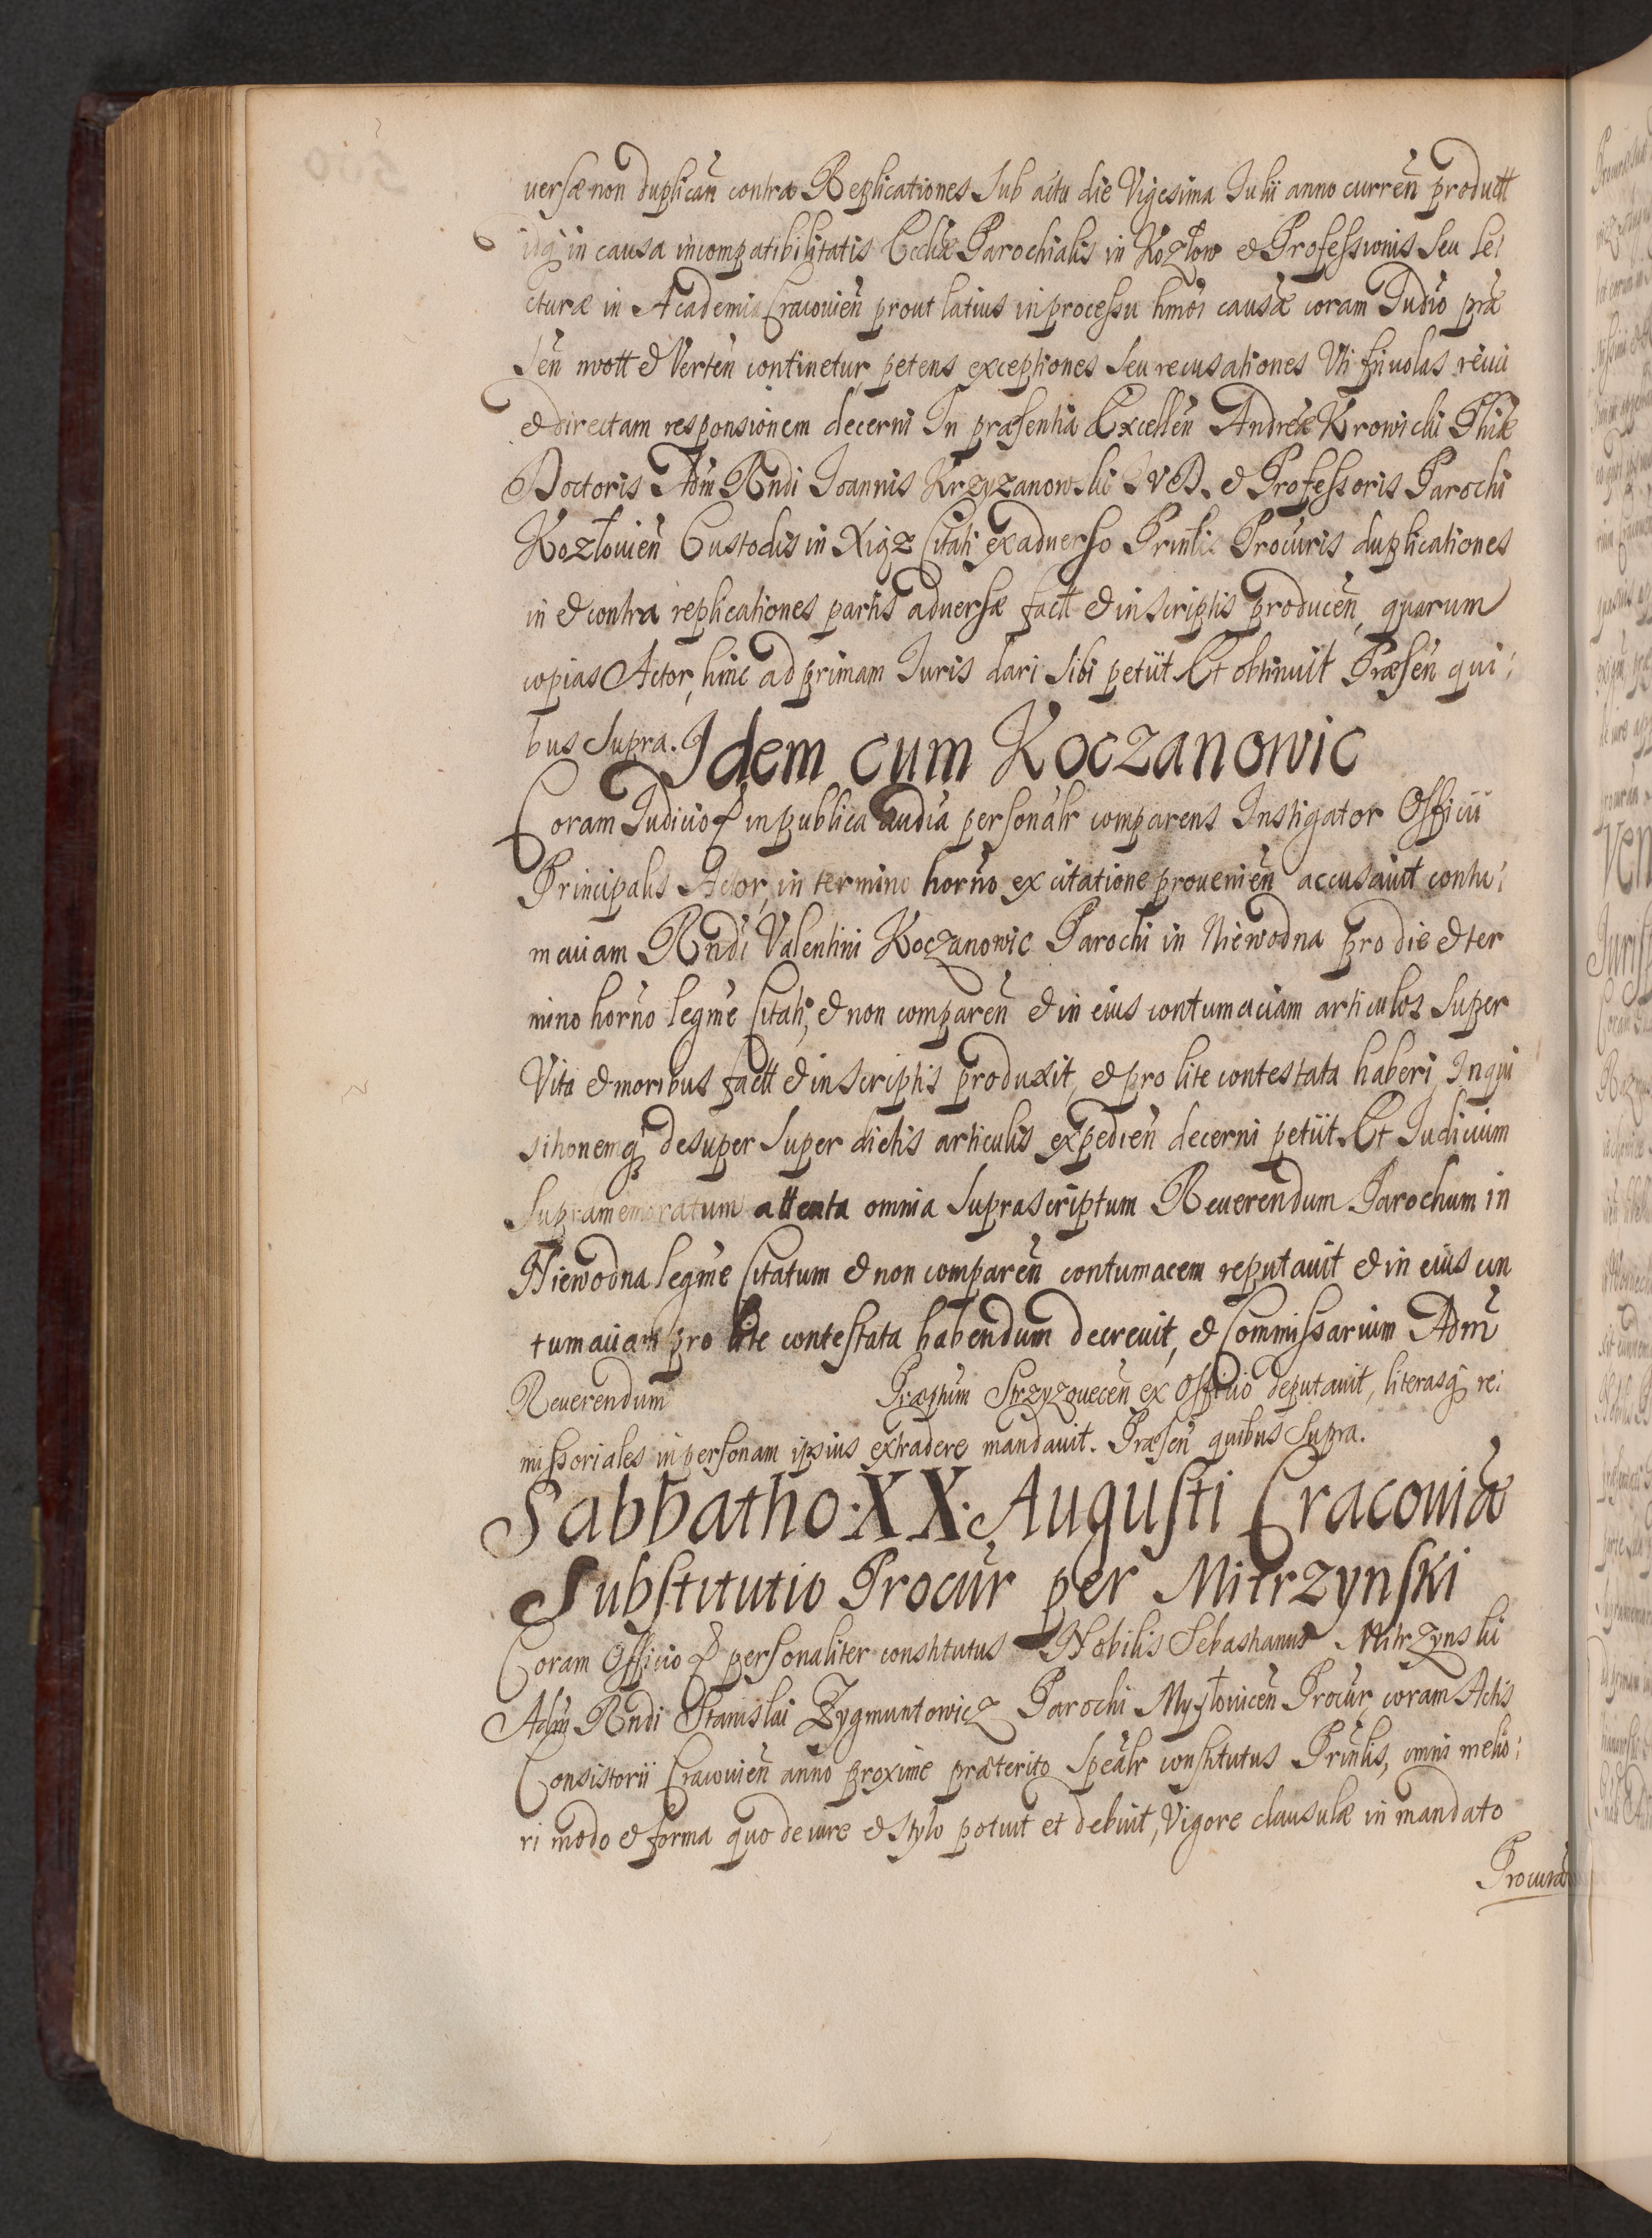 uersæ non duplicañ contra Replicationes Sub actu die Vigesima Julii anno curreñ productt
idq́ in causa incompatibilitatis Eccliæ Parochialis in Kozłow & Professionis Seu le:
cturæ in Academia Cracouieñ prout latius in processu hmoi causæ coram Judio præ
señ mott & Verteñ continetur, petens exceptiones Seu recusationes Vti friuolas reiici
& directam responsionem decerni In præsentia Excelleñ Andreæ Krowicki Philæ
Doctoris Adm̃ Rndi Joannis Krzyzanowski I V D. & Professoris Parochi
Kozłouieñ Custodis in Xiąz Citati ex aduerso Prinlis Procuris duplicationes
in & contra replicationes partis aduersæ factt & in Scriptis produceñ, quarum
copias Actor, hinc ad primam Juris dari Sibi petiit Et obtinuit Præseñ qui:
bus Supra.
Idem cum Koczanowic
Coram Judicio & in publica audia personalr comparens Instigator Officii
Principalis Actor, in termino horno ex citatione proueñieñ accusauit contu:
maciam Rndi Valentini Koczanowic Parochi in Niewodna pro die & ter
mino horño legme Citati, & non compareñ & in eius contumaciam articulos Super
Vita & moribus factt & in Scriptis produxit, & pro lite contestata haberi, Inqui
sitionemq́ desuper Super dictis articulis expedieñ decerni petiit Et Judicium
Supramemoratum attenta omnia Suprascriptum Reuerendum Parochum in
Niewodna legme Citatum & non compareñ contumacem reputauit & in eius con
tumaciam pro lite contestata habendum decreuit, & Commissarium Adm̃
Reuerendum Præptum Strzyzouecen ex Officio deputauit, literasq́ re:
missoriales in personam ipsius extradere mandauit. Præseñ quibus Supra.
Sabbatho. XX. Augusti Cracouiæ
Substitutio Procur per Mitrzynski
Coram Officio & personaliter constitutus Nobilis Sebastianus Mitrzynski
Adm̃ Rndi Stanislai Zygmuntowicz Parochi Mysłouiceñ Procur, coram Actis
Consistorii Cracouieñ anno proxime præterito Spealr constitutus Prinlis, omni melio:
ri modo & forma quo de iure & stylo potuit et debuit, Vigore clausulæ in mandato